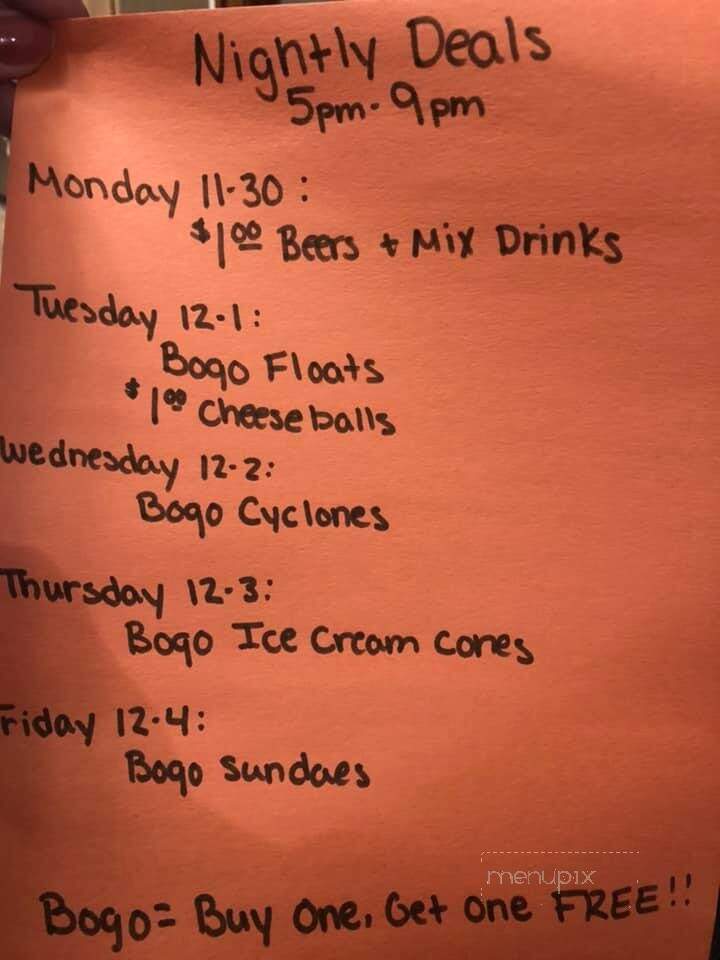 Nightly Deals
5pm-9pm
Monday 11-30:
$1.00 Beers + Mix Drinks
Tuesday 12-1:
Bogo Floats
$1.00 Cheeseballs
Wednesday 12-2:
Bogo Cyclones
Thursday 12-3:
Bogo Ice Cream Cones
Friday 12-4:
Bogo Sundaes
menupix
Bogo= Buy One, Get One FREE!!